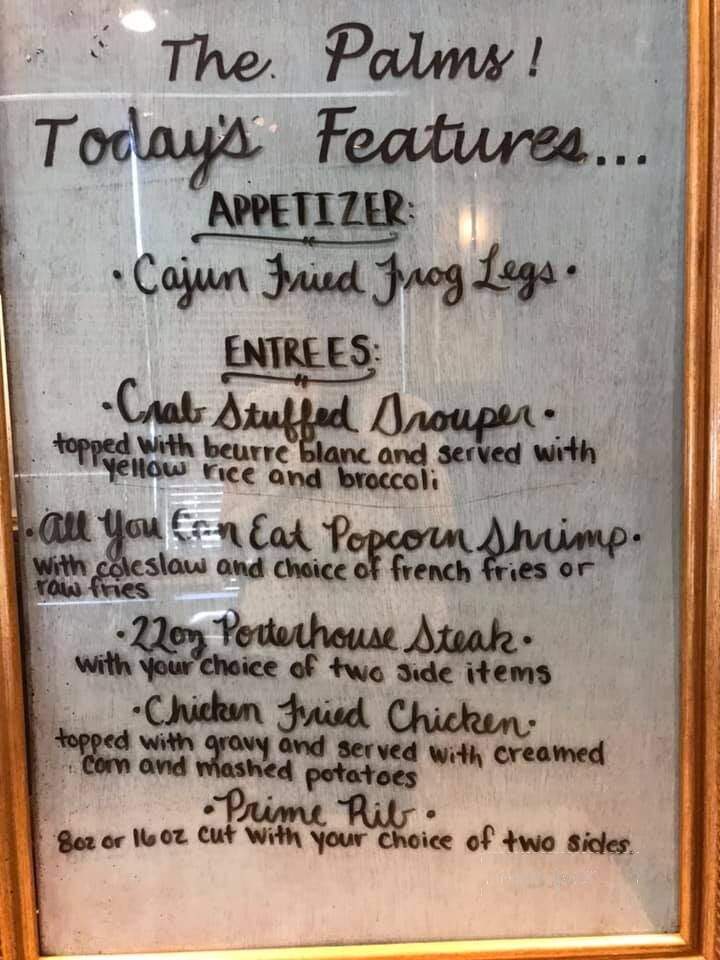 The Palms!
Today's Features...
APPETIZER:
• Cajun Fried Frog Legs •
ENTREES:
• Crab Stuffed Grouper •
topped with beurre blanc and served with
yellow rice and broccoli
• All You Can Eat Popcorn Shrimp •
with coleslaw and choice of french fries or
raw fries
• 22oz Porterhouse Steak •
with your choice of two side items
• Chicken Fried Chicken •
topped with gravy and served with creamed
corn and mashed potatoes
• Prime Rib •
8oz or 16oz cut with your choice of two sides.